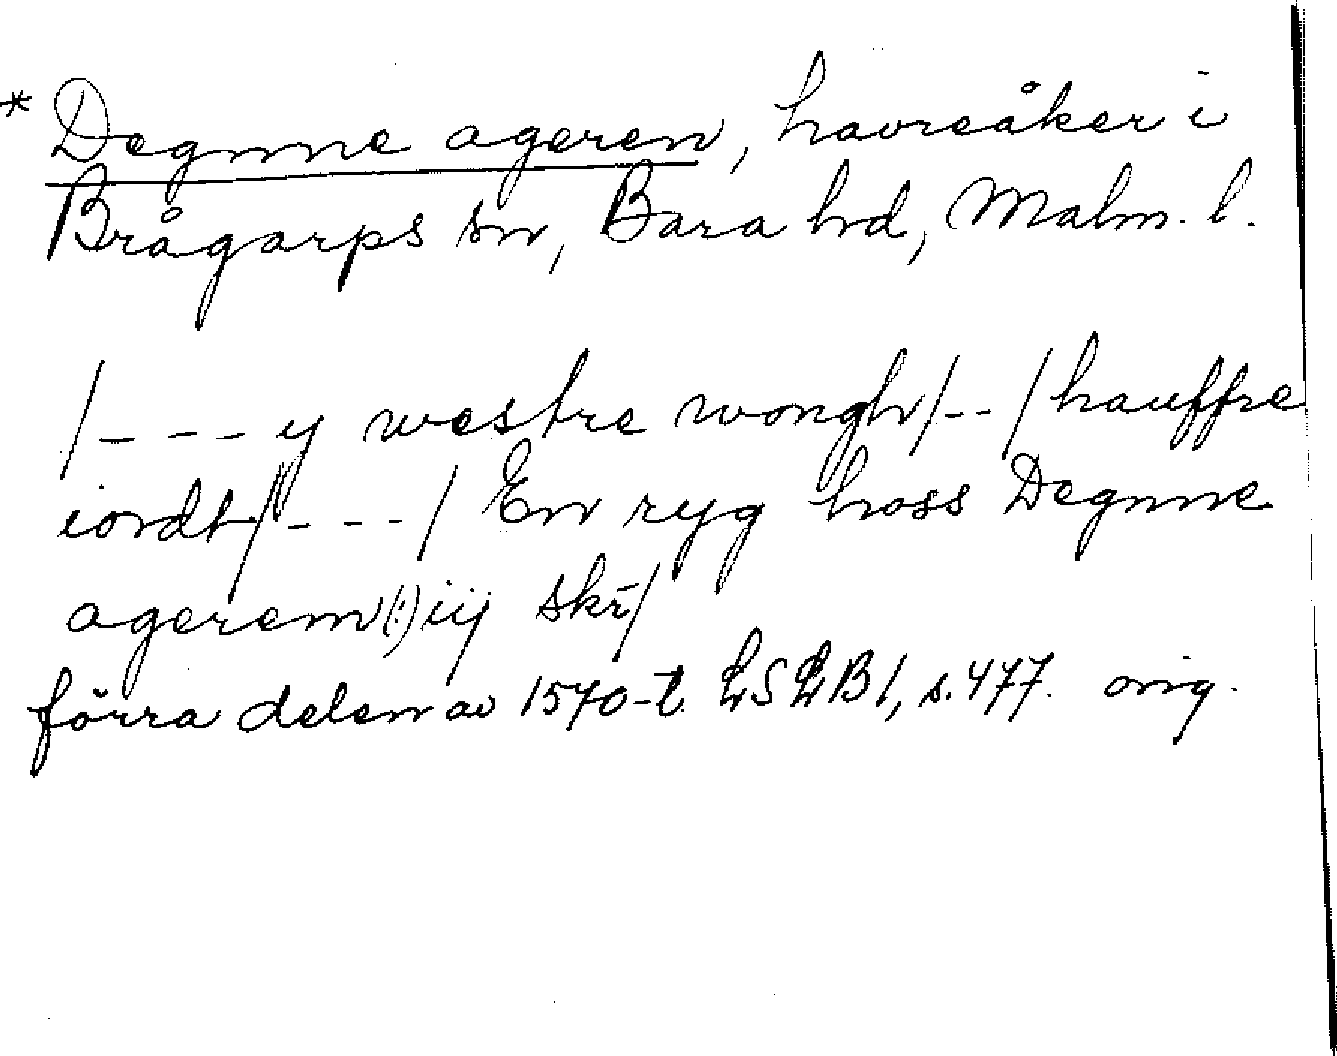 * Degnne ageren, havreåker i
Brågarps sn, Bara hd, Malm. l.
/---y westre wongh/--/hauffre
iordt/---/ En ryg hoss Degnne
ageren(:) iij skr/
förra delen av 1570-t. LSLB I, s. 477. orig.